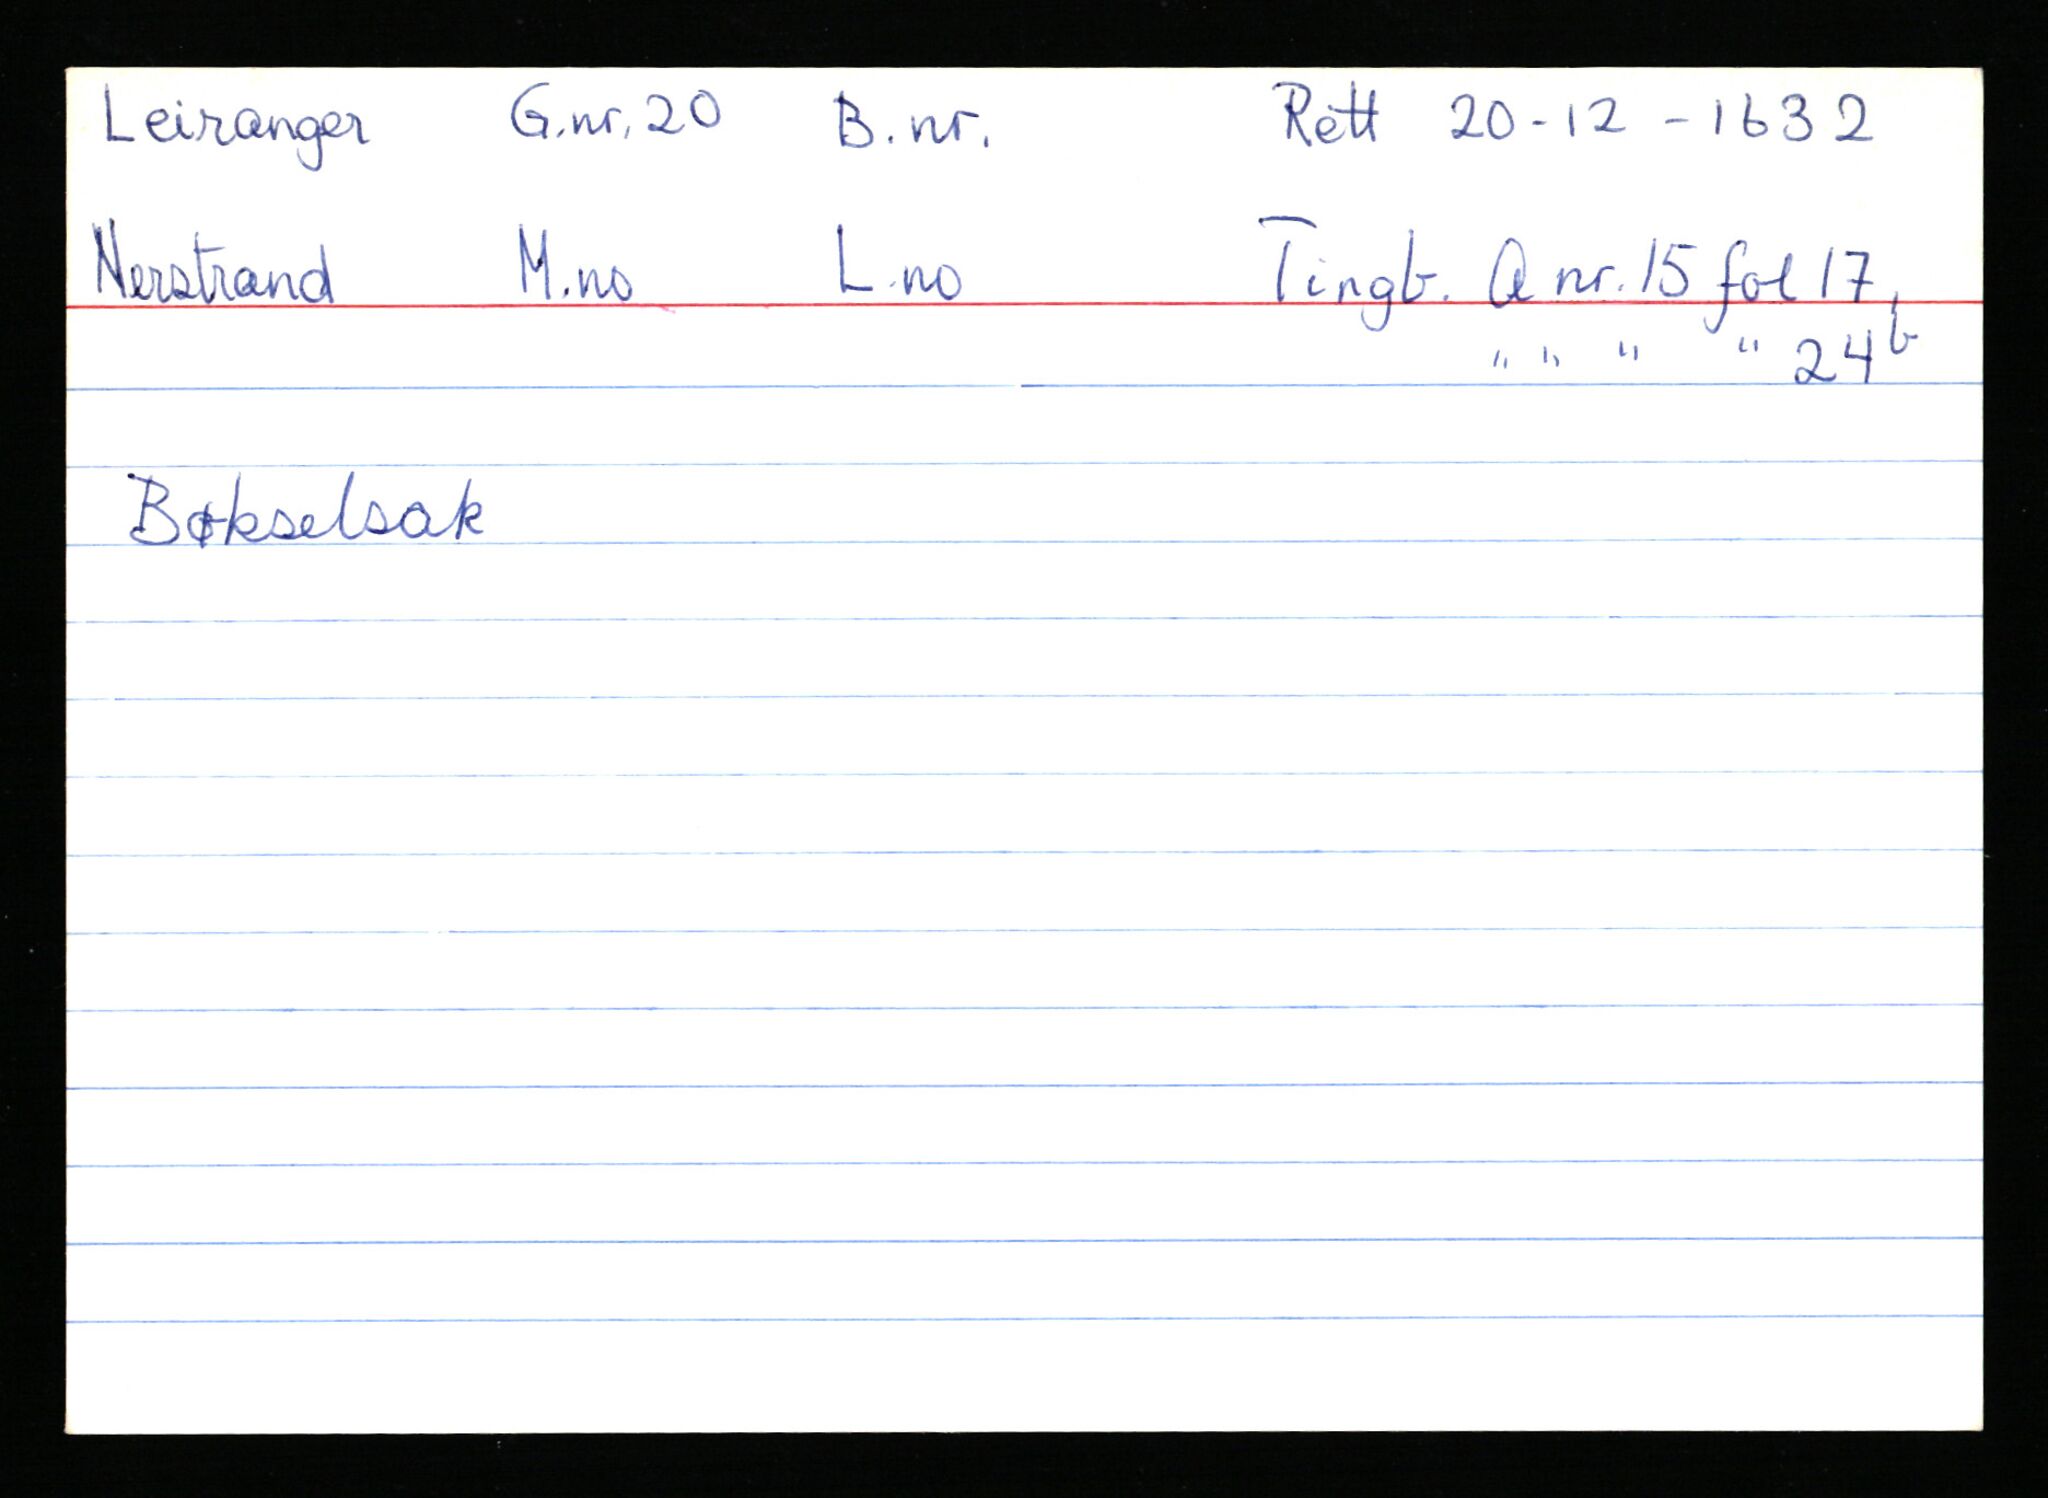 Leiranger G.nr. 20 B.nr. Rett 20-12-1632
Nerstrand M.no L.no Tingb. A nr. 15 fol 17,
" " " " 24b
Bøkselsak